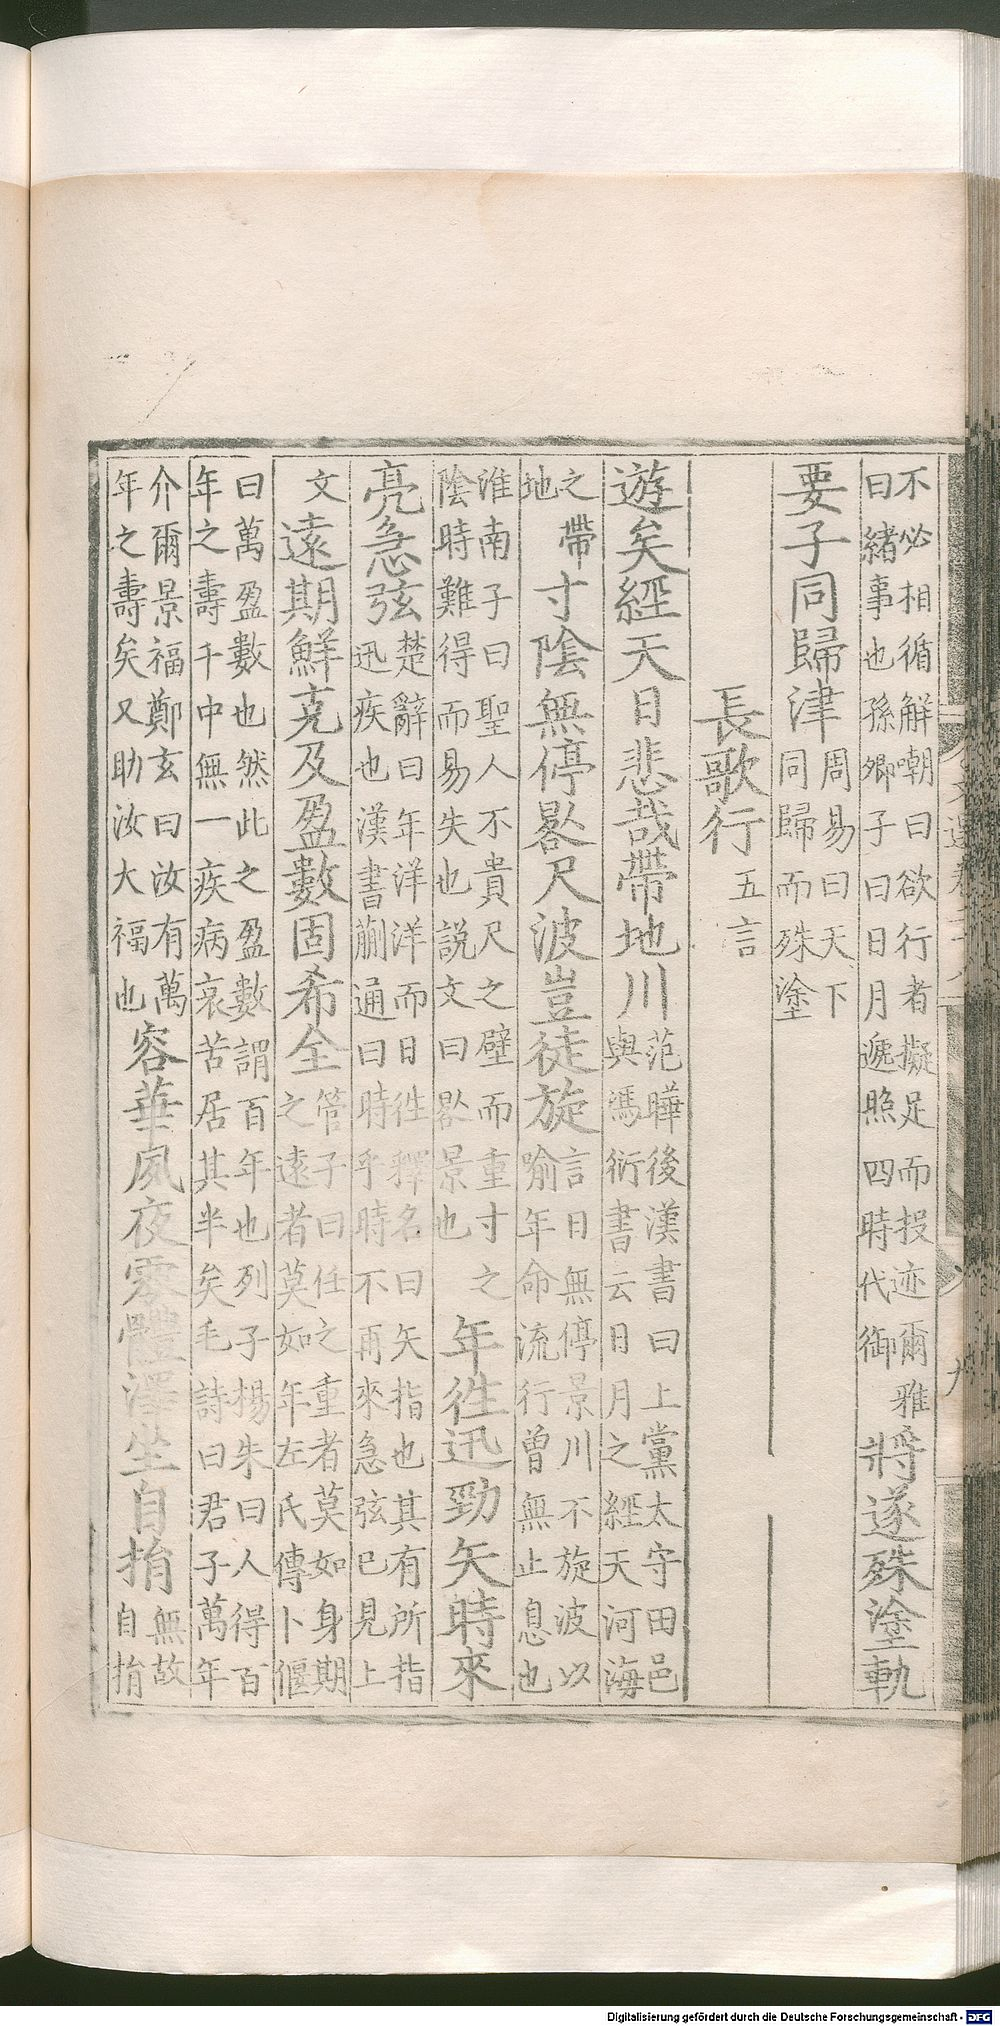 不必相循解嘲曰欲行者擬足而投迹爾雅
曰緒事也孫卿子曰日月遞照四時代御將遂殊塗軌
要子同歸津周易曰天下
同歸而殊塗
長歌行五言
遊矣經天日悲哉帶地川范曄後漢書曰上黨太守田邑
與馮衍書云日月之經天河海
之帶
地寸陰無停晷尺波豈徒旋言日無停景川不旋波以
喻年命流行曾無止息也
淮南子曰聖人不貴尺之璧而重寸之
陰時難得而易失也說文曰晷景也年往迅勁矢時來
亮急弦楚辭曰年洋洋而日往釋名曰矢指也其有所指
迅疾也漢書蒯通曰時乎時不再來急弦已見上
文遠期鮮克及盈數固希全管子曰任之重者莫如身期
之遠者莫如年左氏傳卜偃
曰萬盈數也然此之盈數謂百年也列子楊朱曰人得百
年之壽千中無一疾病哀苦居其半矣毛詩曰君子萬年
介爾景福鄭玄曰汝有萬
年之壽矣又助汝大福也容華夙夜零體澤坐自捐無故
自捐
Digitalisierung gefördert durch die Deutsche Forschungsgemeinschaft - DFG